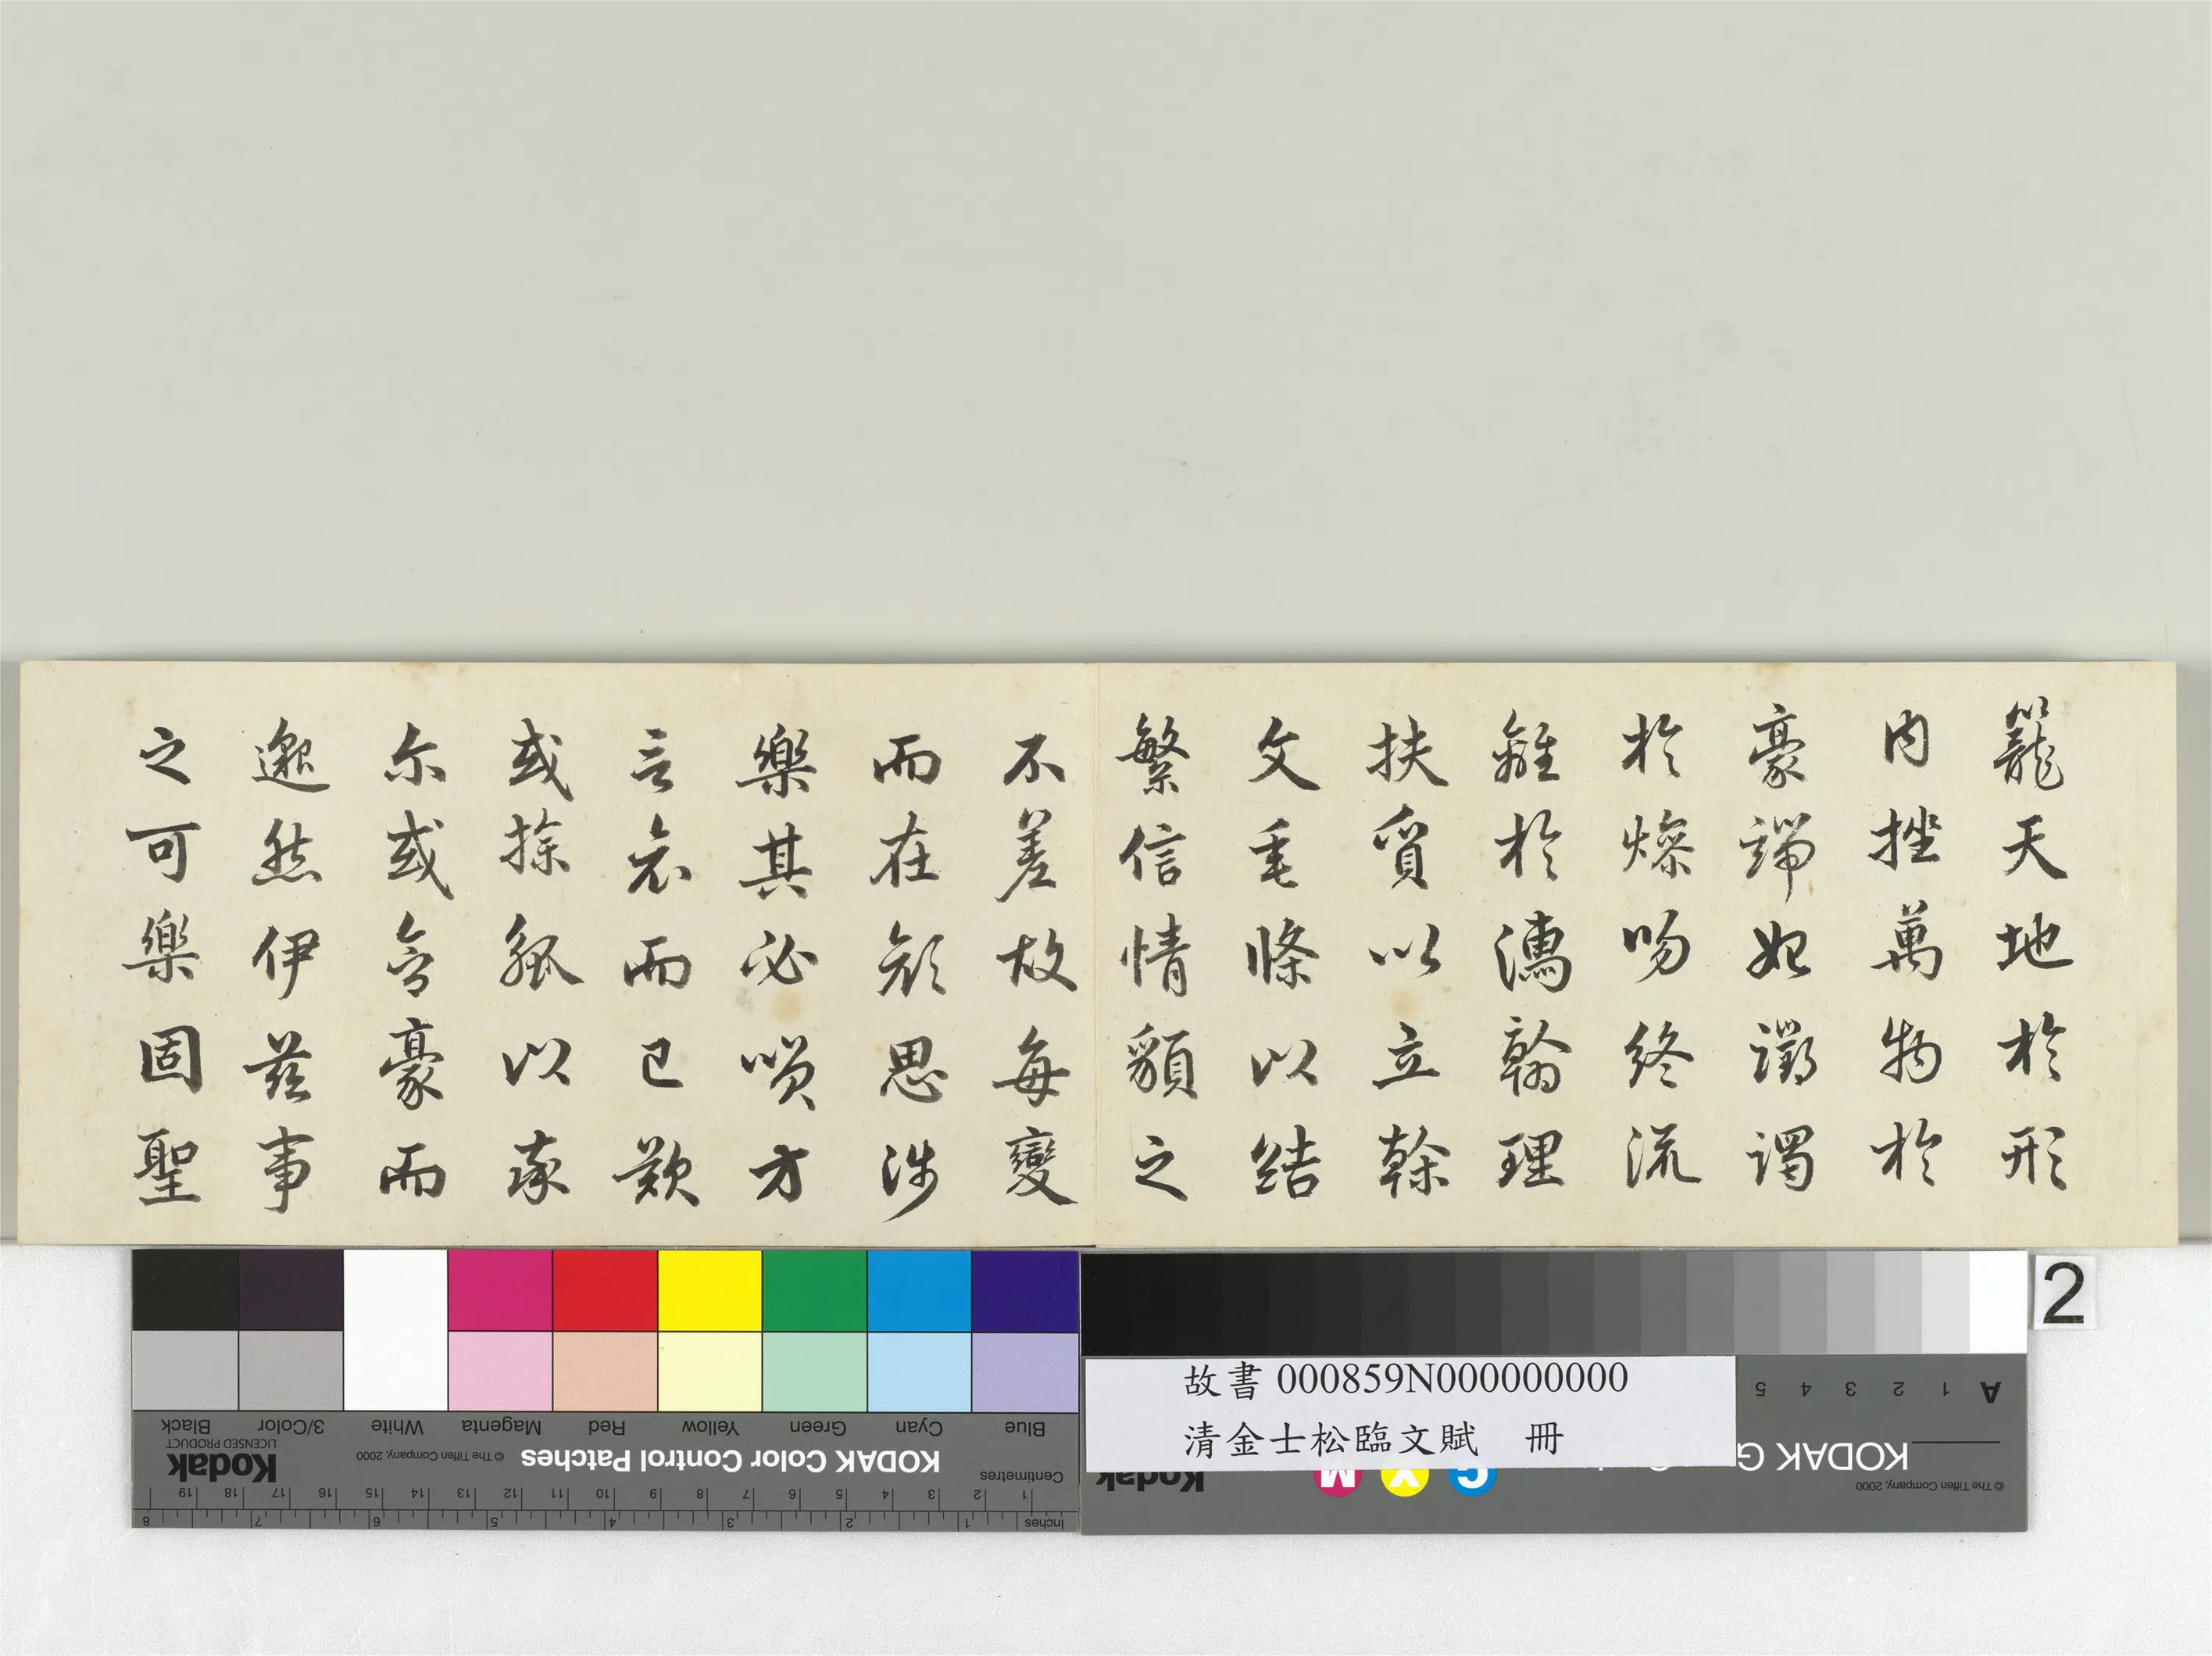 籠天地於形
内挫萬物於
豪端始躑躅
於燥吻終流
離於濡翰理
扶質以立幹
文垂條以結
繁信情䫉之
不差故每變
而在顏思涉
樂其必咲方
言哀而已歎
或操觚以率
尔或含豪而
邈然伊茲事
之可樂固聖
2
故書 000859N000000000
清金士松臨文賦 冊
Blue Cyan Green Yellow Red Magenta White 3/Color Black
KODAK Color Control Patches © The Tiffen Company, 2000 Kodak
LICENSED PRODUCT
Centimetres 1 2 3 4 5 6 7 8 9 10 11 12 13 14 15 16 17 18 19
Inches 1 2 3 4 5 6 7 8
A 1 2 3 4 5
KODAK G
© The Tiffen Company, 2000
Kodak
G Y M